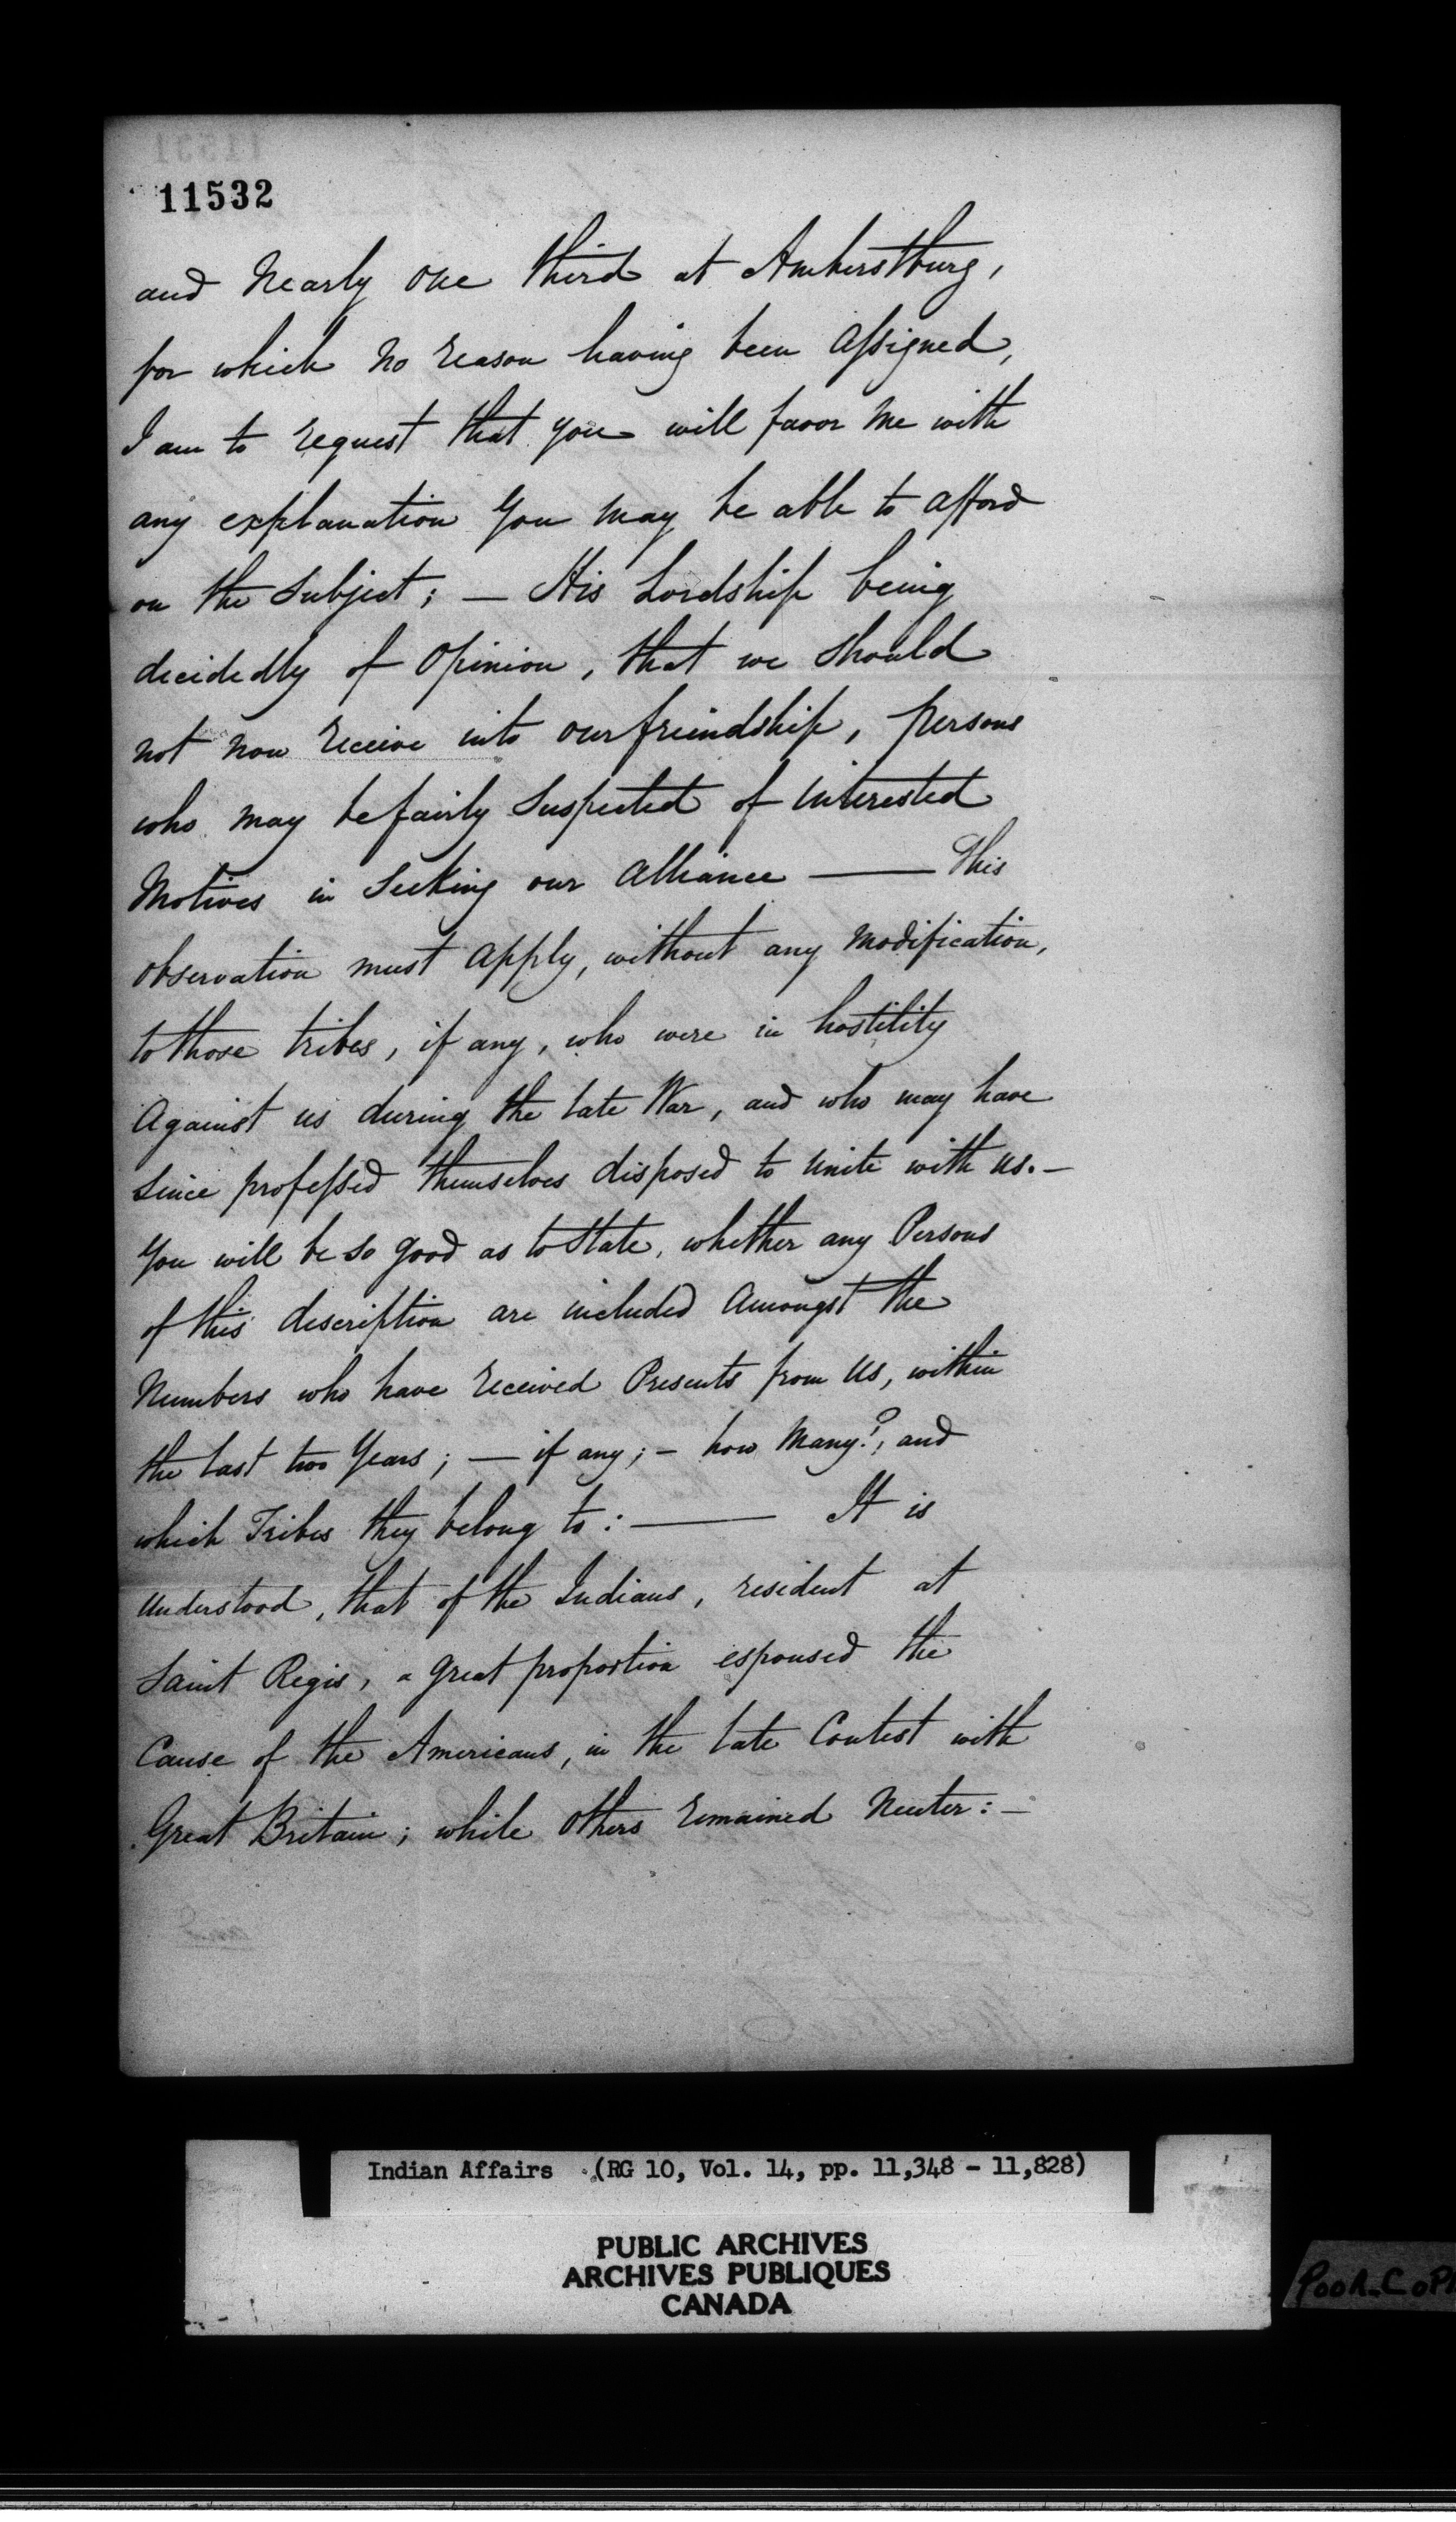 11532
and Nearly One third at Amherstburg,
for which No reason having been assigned,
I am to request that you will favor Me with
any explanation You may be able to afford
on the Subject; — His Lordship being
decidedly of Opinion, that we should
not now receive into our friendship, persons
who may be fairly Suspected of interested
Motives in Seeking our alliance —— This
observation must apply, without any modification,
to those tribes, if any, who were in hostility
Against us during the late War, and who may have
Since professed themselves disposed to Unite with us. —
You will be so good as to State, whether any Persons
of this description are included Amongst the
Numbers who have received Presents from Us, within
the last two Years; — if any; — how Many?, and
which Tribes they belong to: —— It is
Understood, that of the Indians, resident at
Saint Regis, a great proportion espoused the
Cause of the Americans, in the late Contest with
Great Britain; while Others remained Neuter: —
Indian Affairs (RG 10, Vol. 14, pp. 11,348 - 11,828)
PUBLIC ARCHIVES
ARCHIVES PUBLIQUES
CANADA